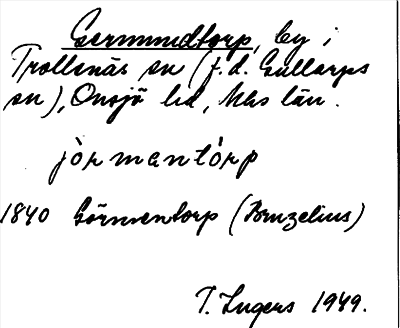 Germundtorp, by i
Trollenäs sn (f.d. Gullarps
sn), Onsjö hd, Mhs län.
jòrmantórp
1840 Görmentorp (Bruzelius)
T. Ingers 1949.